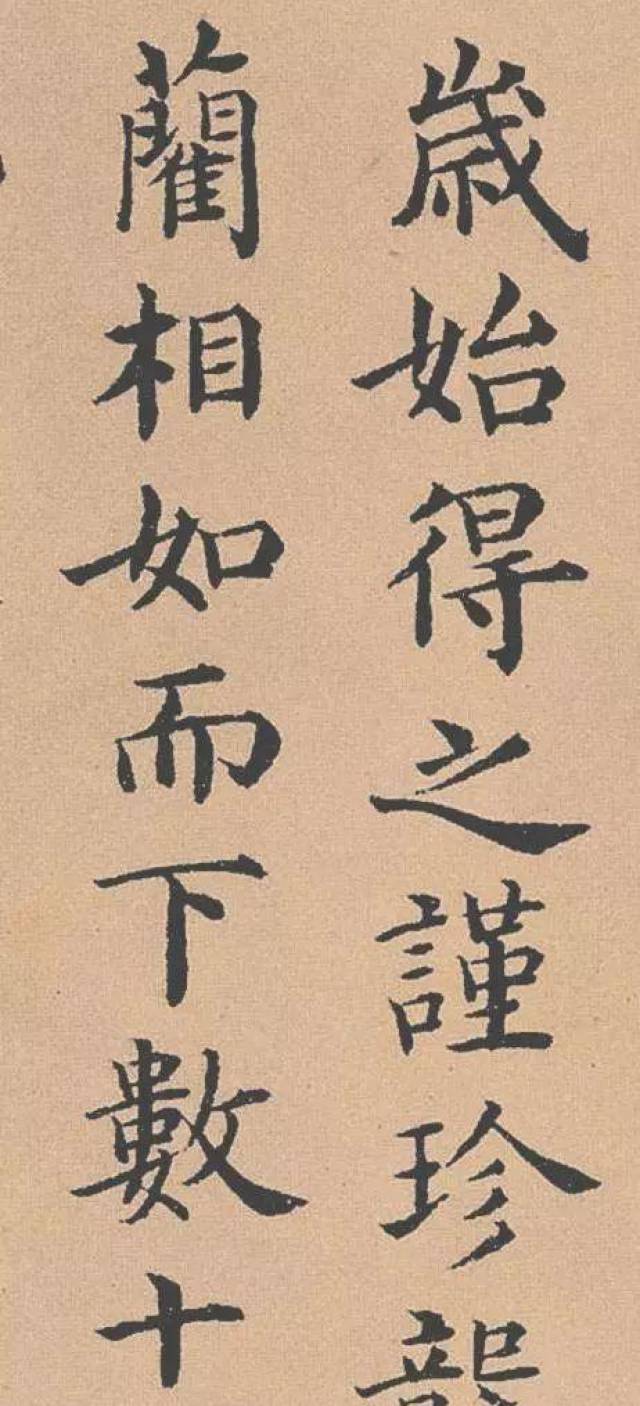 歲始得之謹珍
藺相如而下數十